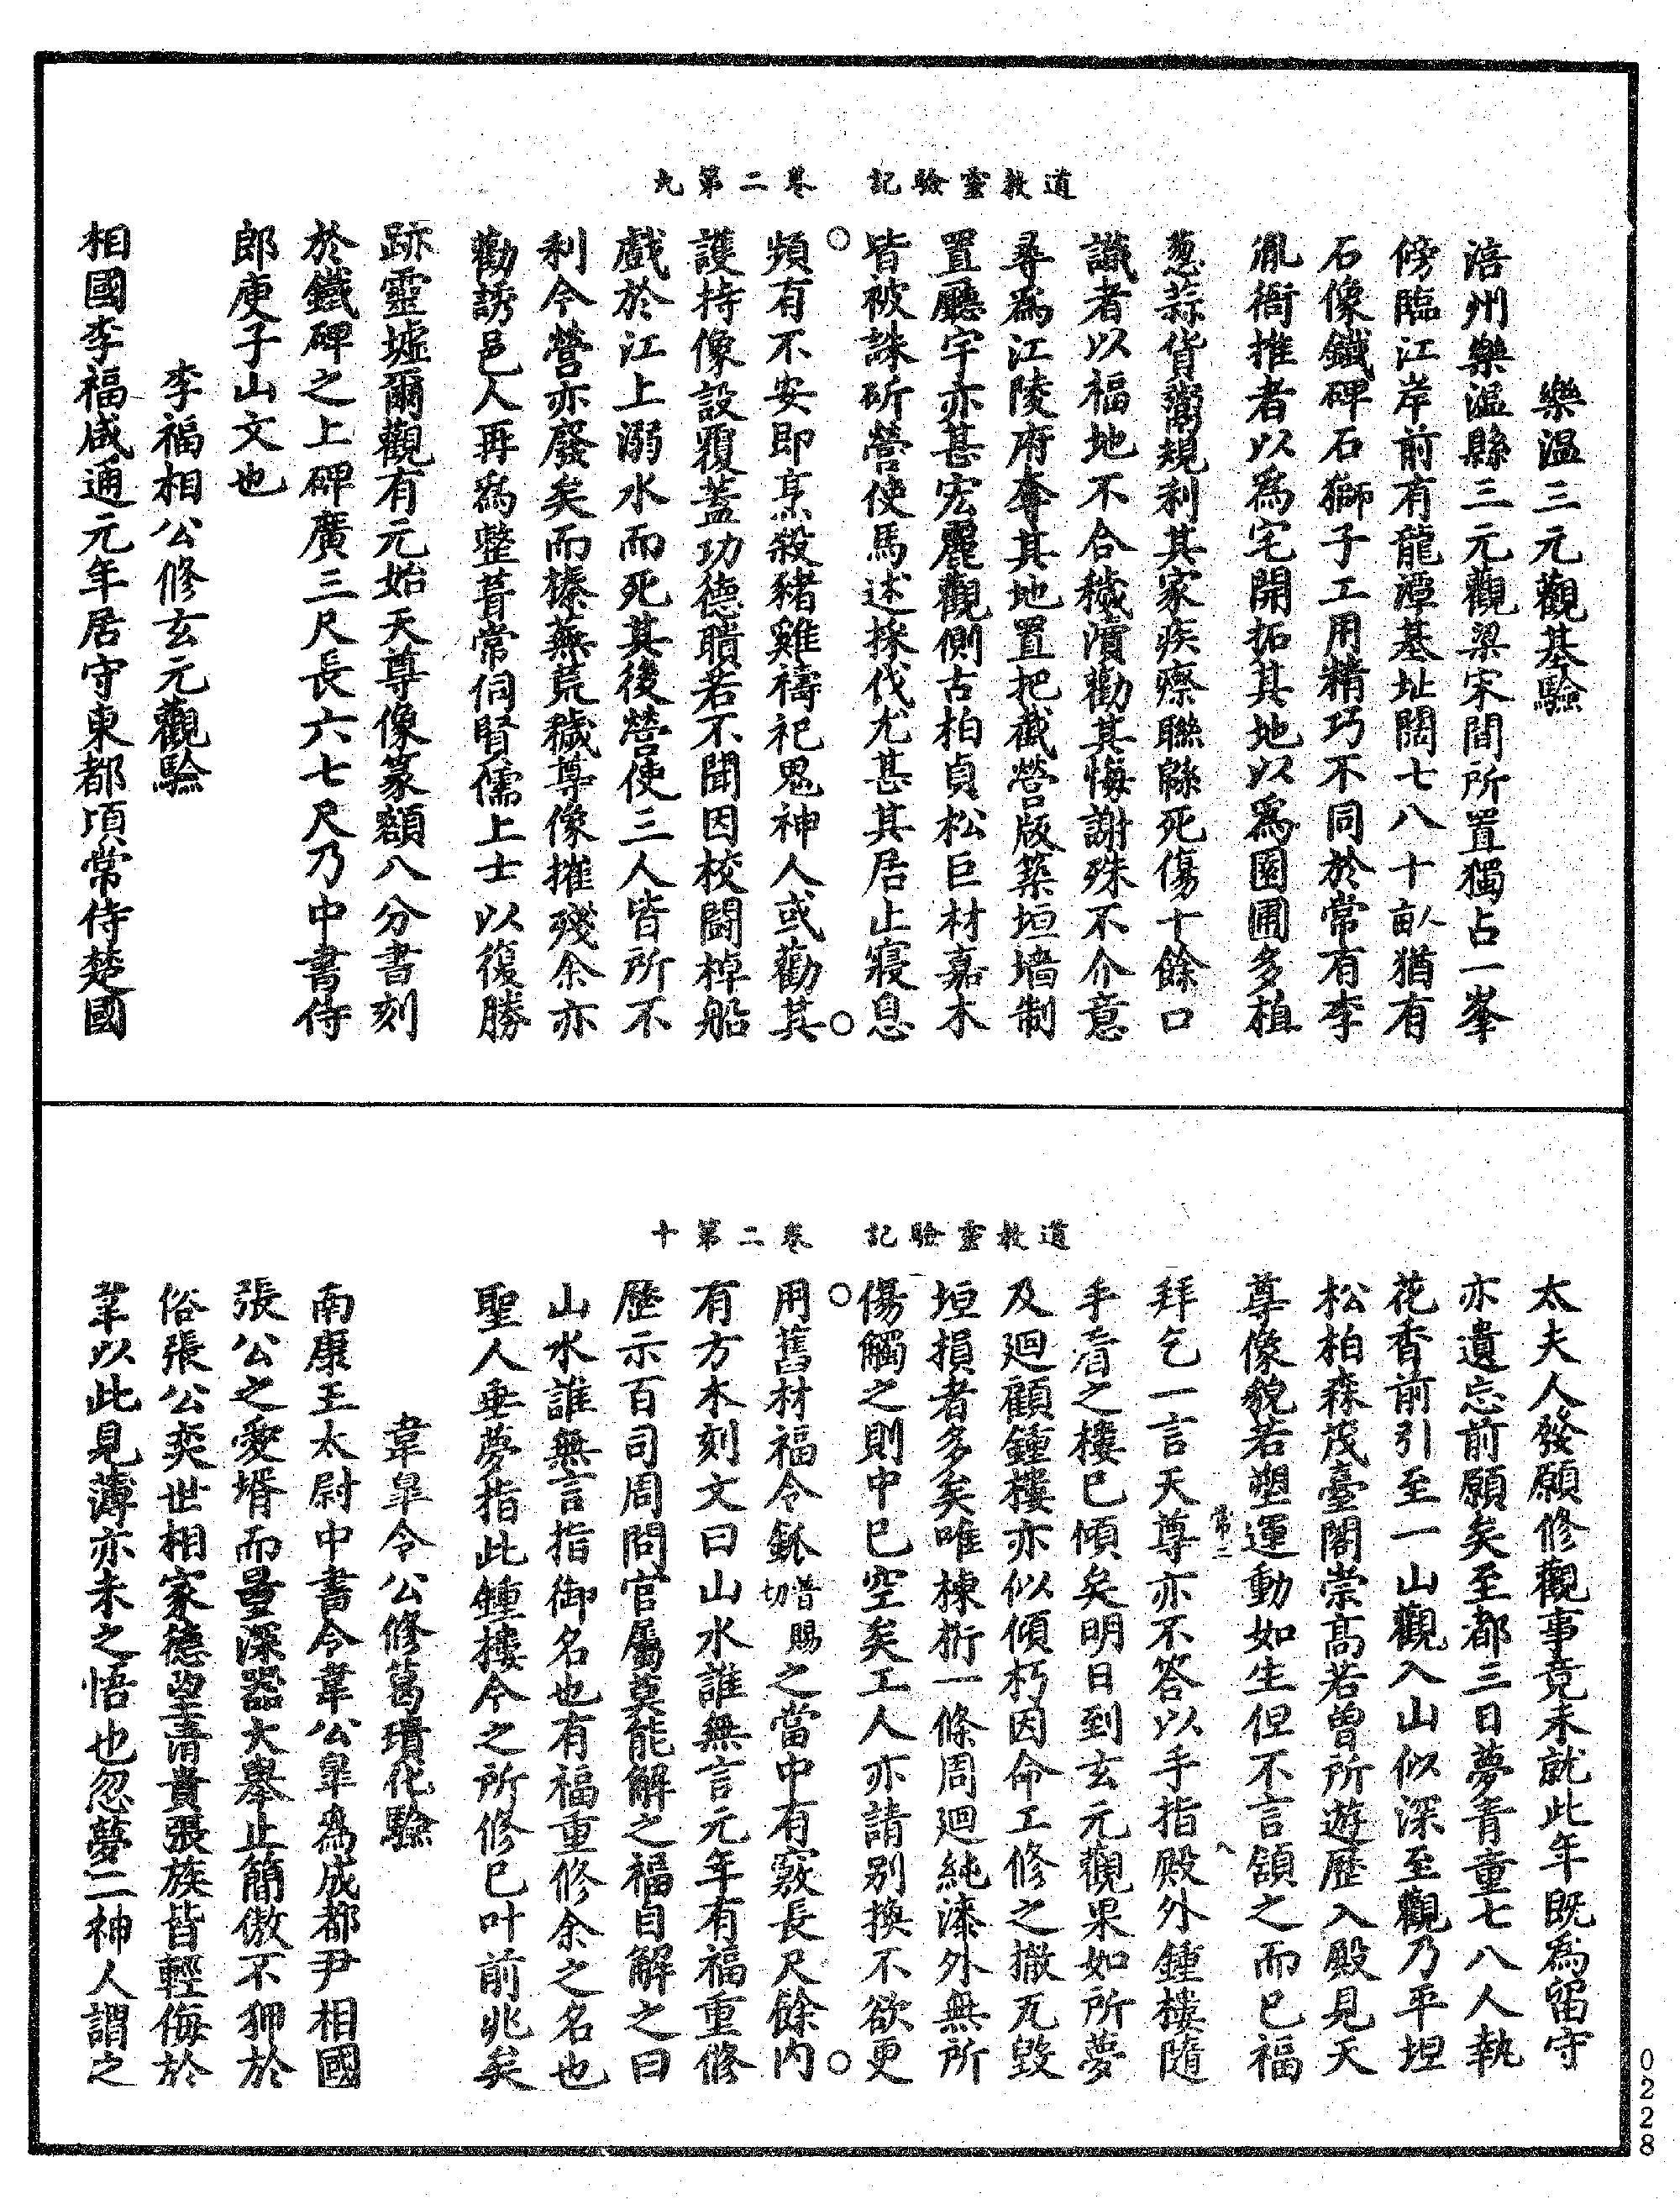 道教靈驗記　卷二第九
樂溫三元觀基驗
涪州樂溫縣三元觀梁宋間所置獨占一峯
傍臨江岸前有龍潭基址闊七八十畝猶有
石像鐵碑石獅子工用精巧不同於常有李
胤衙推者以為宅開拓其地以為園圃多植
葱蒜貨鬻規利其家疾瘵聯緜死傷十餘口
識者以福地不合穢瀆勸其悔謝殊不介意
尋為江陵府奪其地置把截營版築垣墙制
置廳宇亦甚宏麗觀側古柏貞松巨材嘉木
皆被誅斫營使馬述採伐尤甚其居止寢息
頻有不安即烹殺豬雞禱祀鬼神人或勸其
護持像設覆蓋功德聵若不聞因校鬪棹船
戲於江上溺水而死其後營使三人皆所不
利今營亦廢矣而榛蕪荒穢尊像摧殘余亦
勸誘邑人再為整葺常伺賢儒上士以復勝
跡靈墟爾觀有元始天尊像篆額八分書刻
於鐵碑之上碑廣三尺長六七尺乃中書侍
郎庾子山文也
李福相公修玄元觀驗
相國李福咸通元年居守東都頃常侍楚國
道教靈驗記　卷二第十
太夫人發願修觀事竟未就此年既為留守
亦遺忘前願矣至都三日夢青童七八人執
花香前引至一山觀入山似深至觀乃平坦
松柏森茂臺閣崇高若曾所遊歷入殿見天
尊像貌若塑運動如生但不言頷之而已福
常二
拜乞一言天尊亦不答以手指殿外鍾樓隨
手看之樓已傾矣明日到玄元觀果如所夢
及迴顧鍾樓亦似傾朽因命工修之撤瓦毀
垣損者多矣唯棟桁一條周迴純漆外無所
傷觸之則中已空矣工人亦請別換不欲更
用舊材福令釽普賜切之當中有竅長尺餘內
有方木刻文曰山水誰無言元年有福重修
歷示百司周問官屬莫能解之福自解之曰
山水誰無言指御名也有福重修余之名也
聖人垂夢指此鍾樓今之所修已叶前兆矣
韋臯令公修葛璝化驗
南康王太尉中書令韋公臯為成都尹相國
張公之愛壻而量深器大舉止簡傲不狎於
俗張公奕世相家德望清貴張族皆輕侮於
韋以此見薄亦未之悟也忽夢二神人謂之
0228